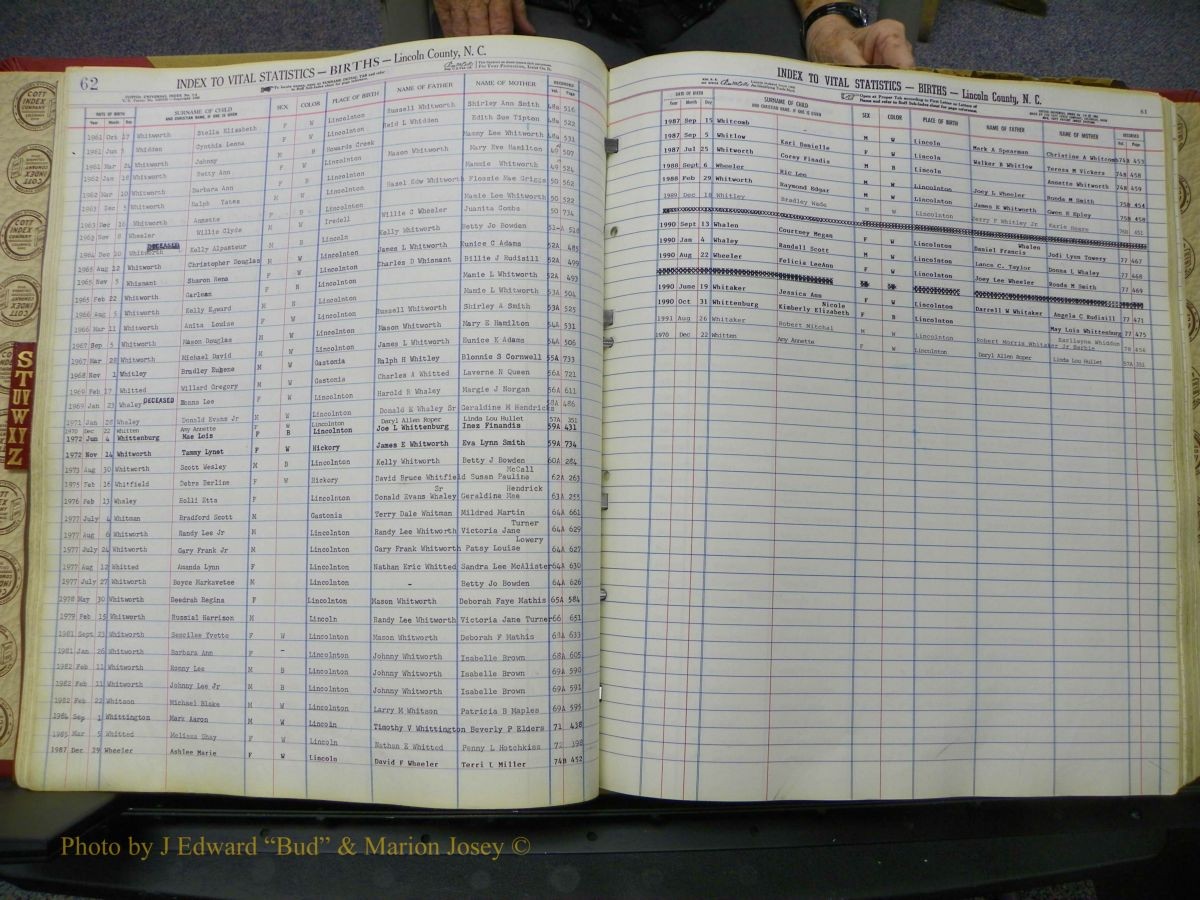 62
INDEX TO VITAL STATISTICS — BIRTHS — Lincoln County, N. C.
DATE OF BIRTH SURNAME OF CHILD SEX COLOR PLACE OF BIRTH NAME OF FATHER NAME OF MOTHER RECORDED
Year Month Day AND CHRISTIAN NAME, IF ONE IS GIVEN Vol. Page
1961 Oct 17 Whitworth Stella Elizabeth F W Lincolnton Russell Whitworth Shirley Ann Smith 48a 516
1961 Jun Whidden Cynthia Leona Reid L Whidden Edith Sue Tipton 48a 522
1961 Mar 24 Whitworth Johnny Howards Creek Manny Lee Whitworth 48a 531
1962 Jan 18 Whitworth Betty Ann F Lincolnton Mason Whitworth Mary Eve Hamilton 49 507
1962 Mar 10 Whitworth Barbara Ann F Lincolnton Mannie Whitworth 49 524
1963 Dec 5 Whitworth Ralph Yates M W Lincolnton Hazel Edw Whitworth Flossie Mae Griggs 50 562
1963 Dec 16 Whitworth Annette F Lincolnton Mamie Lee Whitworth 50 522
Nov 8 Wheeler Willie Clyde M W Iredell Willie C Wheeler Juanita Combs 50 734
1964 Dec 20 Whitworth DECEASED Kelly Alpasteur M B Lincoln Kelly Whitworth Betty Jo Bowden
1965 Aug 12 Whitworth Christopher Douglas M W Lincolnton James L Whitworth Eunice C Adams 52A 485
1965 Nov 5 Whisnant Sharon Rena F Lincolnton Charles D Whisnant Billie J Rudisill 52A 499
1965 Feb 22 Whitworth Lincolnton Mamie L Whitworth 52A 493
1966 Aug 5 Whitworth Kelly Edward Lincolnton Mamie L Whitworth 53A 504
1966 Mar 11 Whitworth Anita Louise F W Lincolnton Russell Whitworth Shirley A Smith 53A 525
1967 Sep 5 Whitworth Mason Douglas Lincolnton Mason Whitworth Mary E Hamilton 54A 531
1967 Mar 28 Whitworth Michael David M W Lincolnton James L Whitworth Eunice K Adams 54A 506
1968 Nov 1 Whitley Bradley Eugene M W Gastonia Ralph H Whitley Blonnie S Cornwell 55A 733
1969 Feb 17 Whitted Willard Gregory M W Gastonia Charles A Whitted Laverne N Queen 56A 721
1969 Jan 23 Whaley DECEASED Donna Lee F W Lincolnton Harold R Whaley Margie J Norgan 56A 611
1971 Jan 28 Whaley Donald Evans Jr M W Lincolnton Donald E Whaley Sr Geraldine M Hendricks 58A 486
1970 Dec 22 Whitten Amy Annette F W Lincolnton Daryl Allen Roper Linda Lou Hullet 57A 351
1972 Jun 4 Whittenburg Mae Lois F B Lincolnton Joe L Whittenburg Ines Finandis 59A 431
1972 Nov 14 Whitworth Tammy Lynet F W Hickory James E Whitworth Eva Lynn Smith 59A 734
1973 Aug 30 Whitworth Scott Wesley M B Lincolnton Kelly Whitworth Betty J Bowden 60A 284
1975 Feb 16 Whitfield Debra Derline F W Hickory David Bruce Whitfield Susan Pauline McCall 62A 263
1976 Feb 13 Whaley Holli Etta F Lincolnton Donald Evans Whaley Sr Geraldine Mae Hendrick 63A 255
1977 July 4 Whitman Bradford Scott M Gastonia Terry Dale Whitman Mildred Martin 64A 661
1977 Aug 6 Whitworth Randy Lee Jr M Lincolnton Randy Lee Whitworth Victoria Jane Turner 64A 629
1977 July 24 Whitworth Gary Frank Jr M Lincolnton Gary Frank Whitworth Patsy Louise Lowery 64A 627
1977 Aug 12 Whitted Amanda Lynn F Lincolnton Nathan Eric Whitted Sandra Lee McAlister 64A 630
1977 July 27 Whitworth Boyce Markavetee M Lincolnton - Betty Jo Bowden 64A 626
1978 May 30 Whitworth Deedrah Regina F Lincolnton Mason Whitworth Deborah Faye Mathis 65A 584
1979 Feb 15 Whitworth Russial Harrison M Lincoln Randy Lee Whitworth Victoria Jane Turner 66 651
1981 Sept 23 Whitworth Sescilee Yvette F W Lincolnton Mason Whitworth Deborah F Mathis 68A 633
1981 Jan 26 Whitworth Barbara Ann F - Lincolnton Johnny Whitworth Isabelle Brown 68A 605
1982 Feb 11 Whitworth Ronny Lee M B Lincolnton Johnny Whitworth Isabelle Brown 69A 590
1982 Feb 11 Whitworth Johnny Lee Jr M B Lincolnton Johnny Whitworth Isabelle Brown 69A 591
1982 Feb 22 Whitson Michael Blake M W Lincolnton Larry M Whitson Patricia B Maples 69A 595
1984 Sep 1 Whittington Mark Aaron M W Lincoln Timothy V Whittington Beverly P Elders 71 438
1985 Mar 5 Whitted Melissa Shay F W Lincoln Nathan E Whitted Penny L Hotchkiss 72 398
1987 Dec 29 Wheeler Ashlee Marie F W Lincoln David F Wheeler Terri L Miller 74B 452
INDEX TO VITAL STATISTICS — BIRTHS — Lincoln County, N. C.
61
DATE OF BIRTH SURNAME OF CHILD SEX COLOR PLACE OF BIRTH NAME OF FATHER NAME OF MOTHER RECORDED
Year Month Day AND CHRISTIAN NAME, IF ONE IS GIVEN Vol. Page
1987 Sep 15 Whitcomb Kari Danielle F W Lincoln Mark A Spearman Christine A Whitcomb 74B 453
1987 Sep 5 Whitlow Corey Finadis M B Lincoln Walker B Whitlow Teresa M Vickers 74B 458
1987 Jul 25 Whitworth Ric Leo M Lincoln Annette Whitworth 74B 459
1988 Sept 6 Wheeler Raymond Edgar M W Lincolnton Joey L Wheeler Ronda M Smith 75B 454
1988 Feb 29 Whitworth Bradley Wade M W Lincolnton James K Whitworth Gwen H Epley 75B 458
1989 Dec 18 Whitley Jerry F Whitley Jr Karla Beare 76B 451
1990 Sept 13 Whalen Courtney Megan F W Lincolnton Daniel Francis Whalen Jodi Lynn Towery 77 467
1990 Jan 4 Whaley Randall Scott M W Lincolnton Lance C. Taylor Donna L Whaley 77 468
1990 Aug 22 Wheeler Felicia LeeAnn F W Lincolnton Joey Lee Wheeler Ronda M Smith 77 469
1990 June 19 Whitaker Jessica Ann F W Lincolnton Darrell W Whitaker Angela C Rudisill 77 471
1990 Oct 31 Whittenburg Kimberly Elizabeth Nicole F B Lincolnton May Luis Whittenburg 77 475
1991 Aug 26 Whitaker Robert Mitchal M W Lincolnton Robert Morris Whitaker Jr Earllayne Whiddon 78 456
1970 Dec 22 Whitten Amy Annette F W Lincolnton Daryl Allen Roper Linda Lou Hullet 57A 351
COTT INDEX COMPANY
S
T
UV
W
XYZ
Photo by J Edward “Bud” & Marion Josey ©